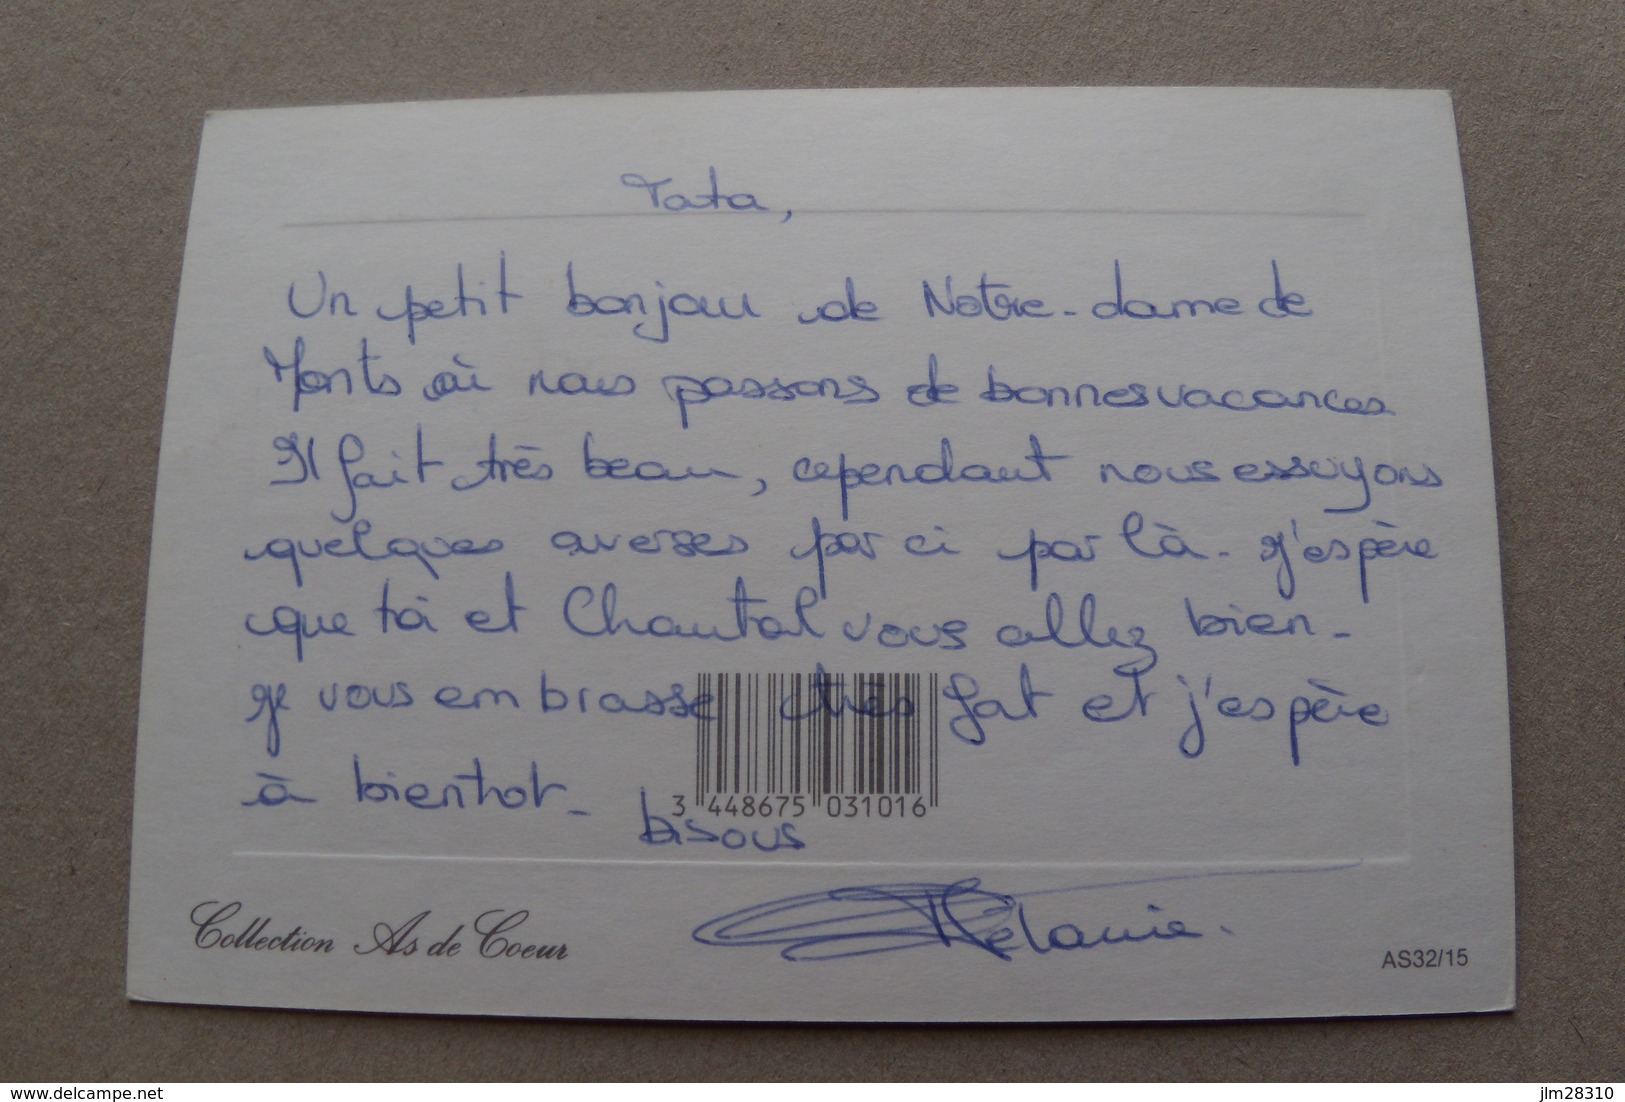 Tata,
Un petit bonjour de Notre-dame de
Monts où nous passons de bonnes vacances
Il fait très beau, cependant nous essuyons
quelques averses par ci par là. J'espère
que toi et Chantal vous allez bien.
Je vous embrasse très fort et j'espère
à bientôt.
3 448675 031016
bisous
Mélanie.
Collection As de Coeur
AS32/15
www.delcampe.net
jlm28310